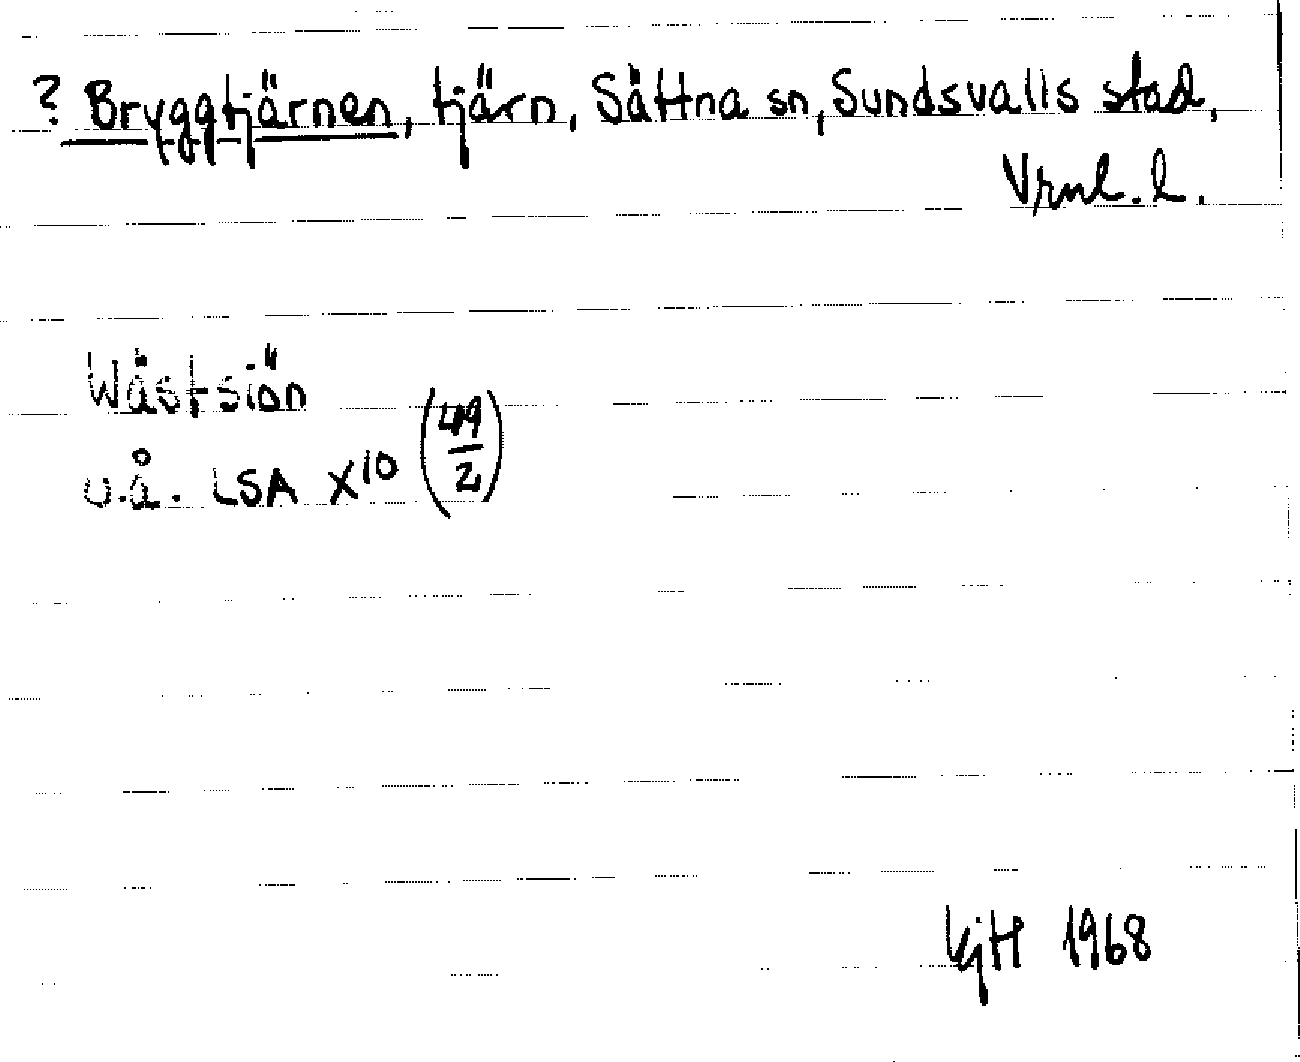 ? Bryggtjärnen, tjärn, Sättna sn, Sundsvalls stad,
Vrnl. l.
Wästsiön
u.å. LSA X10 (49/2)
KjH 1968